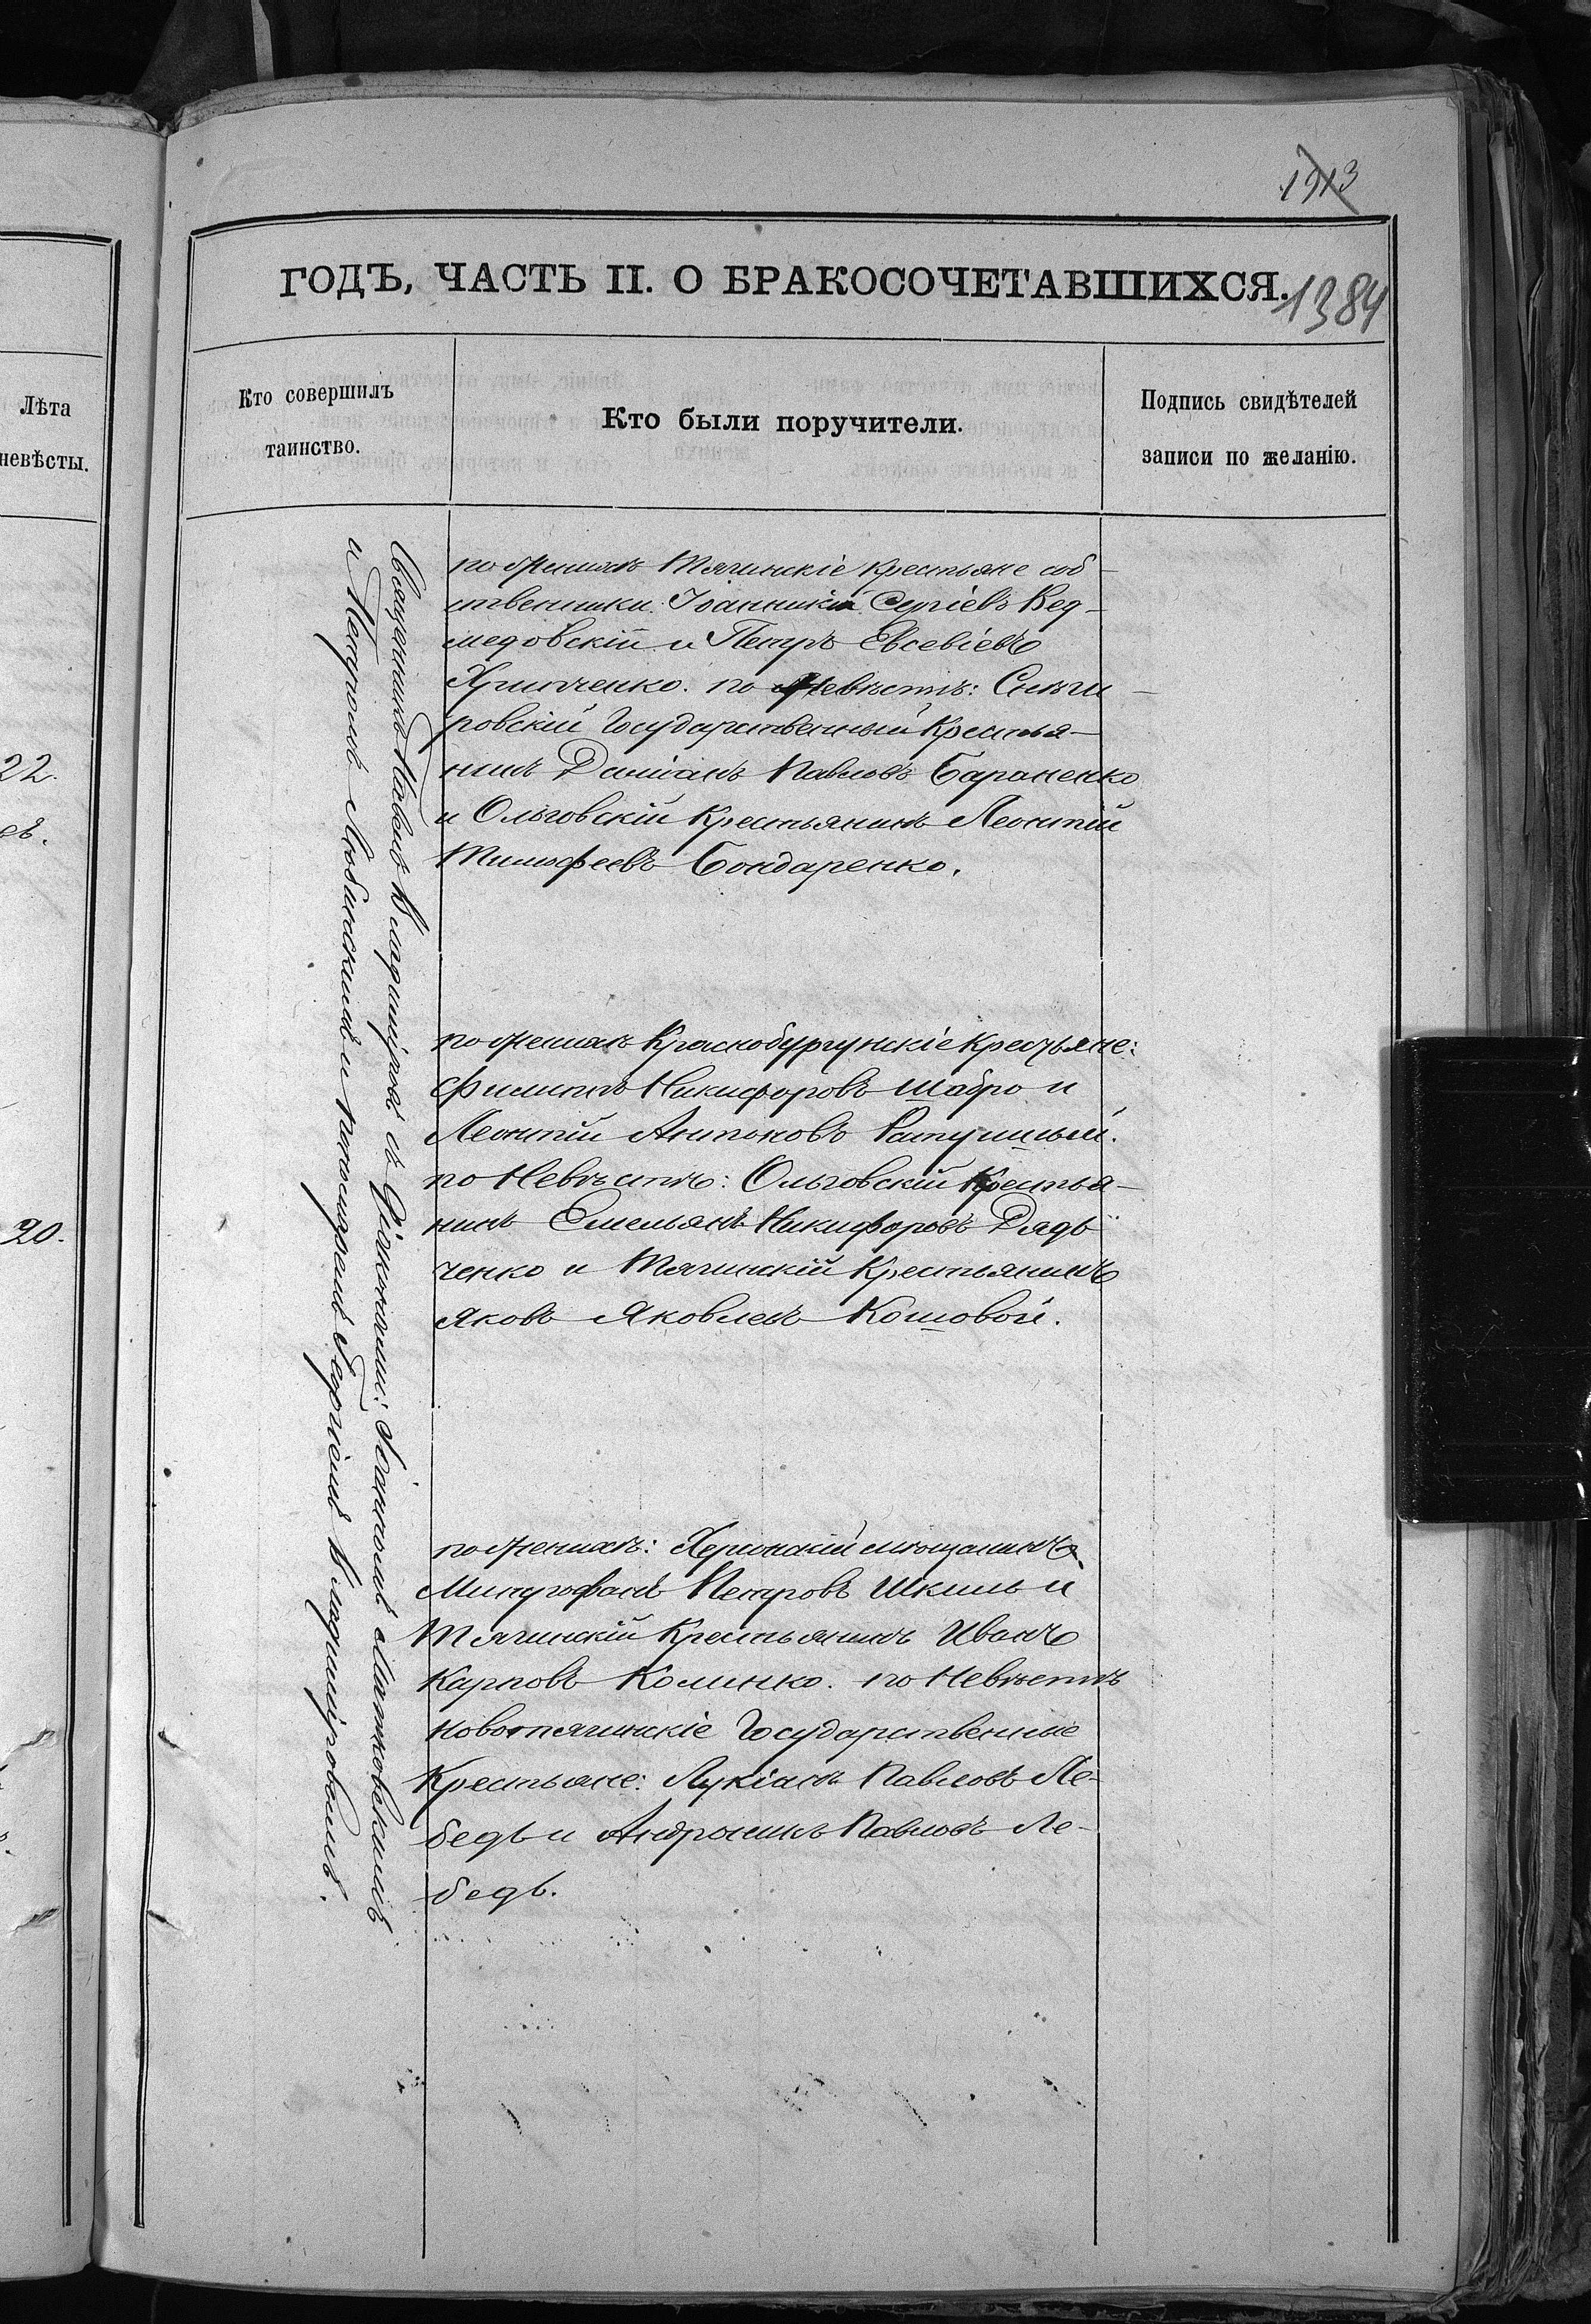 1913
ГОДЪ, ЧАСТЬ II. О БРАКОСОЧЕТАВШИХСЯ.
1384
Лѣта
невѣсты.
22.
20.
Кто совершилъ
таинство.
Кто были поручители.
Подпись свидѣтелей
записи по желанію.
Священникъ Павелъ Владиміровъ съ Діаконами: Іоанномъ
и Петромъ Любинскимъ и пономаремъ Георгіемъ Владиміровымъ.
по Женихѣ Тягинскіе крестьяне соб-
ственники: Іоанникій Сергіевъ Вед-
медовскій и Петръ Евсевіевъ
Хрипченко. по Невѣстѣ: Снѣги-
ровскій Государственный Крестья-
нинъ Даміанъ Павловъ Бараненко
и Ольговскій Крестьянинъ Леонтій
Тимофеевъ Бондаренко.
по Женихѣ Краснобургунскіе Крестьяне:
Филиппъ Никифоровъ Шабро и
Леонтій Антоновъ Ратушный.
по Невѣстѣ: Ольговскій Крестья-
нинъ Емельянъ Никифоровъ Дядь
ченко и Тягинскій Крестьянинъ
Яковъ Яковлевъ Кошовой.
по Женихѣ: Херсонскій мѣщанинъ
Митрофанъ Петровъ Шкиль и
Тягинскій Крестьянинъ Иванъ
Карповъ Калинко. по Невѣстѣ
Новотягинскіе Государственные
Крестьяне: Лукіанъ Павловъ Ле-
бедь и Андроникъ Павловъ Ле-
бедь.